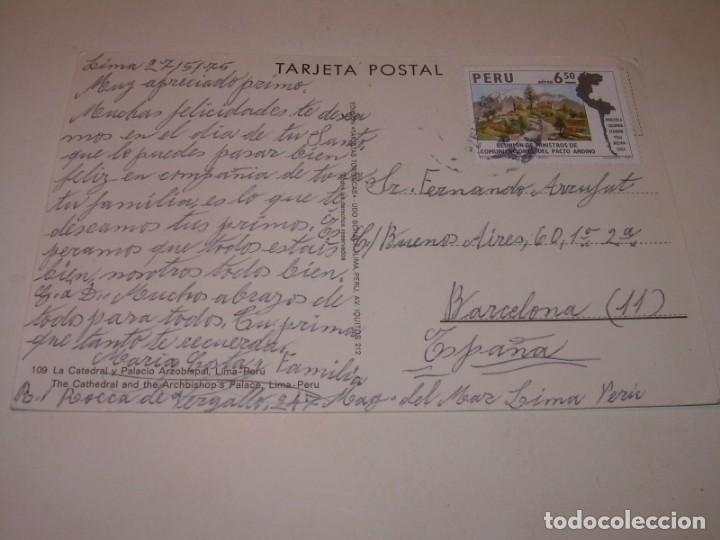 TARJETA POSTAL
Lima 27/5/75
Muy apreciado primo.
Muchas felicidades te desea
mos en el dia de tu Santo
que lo puedes pasar bien
feliz en compañia de toda
tu familia, es lo que te
deseamos tus primos, Es
peramos que todos estais
bien, nosotros todo bien.
G. a D. Muchos abrazos de
todo para todos. Tu prima
que tanto te recuerda.
Maria y Familia
109 La Catedral y Palacio Arzobispal, Lima-Perú
The Cathedral and the Archbishop's Palace, Lima-Peru
Rocca de Vergallo, 247 Mag. del Mar Lima Perú
LIMA, PERU, AV. IQUITOS 212
derechos reservados
PERU
aéreo 6.50
REUNION DE MINISTROS DE
COMUNICACIONES DEL PACTO ANDINO
VENEZUELA
COLOMBIA
ECUADOR
PERU
BOLIVIA
CHILE
Sr. Fernando Arrufat
C/ Buenos Aires, 60, 1º 2ª
Barcelona (11)
España
todocoleccion.net